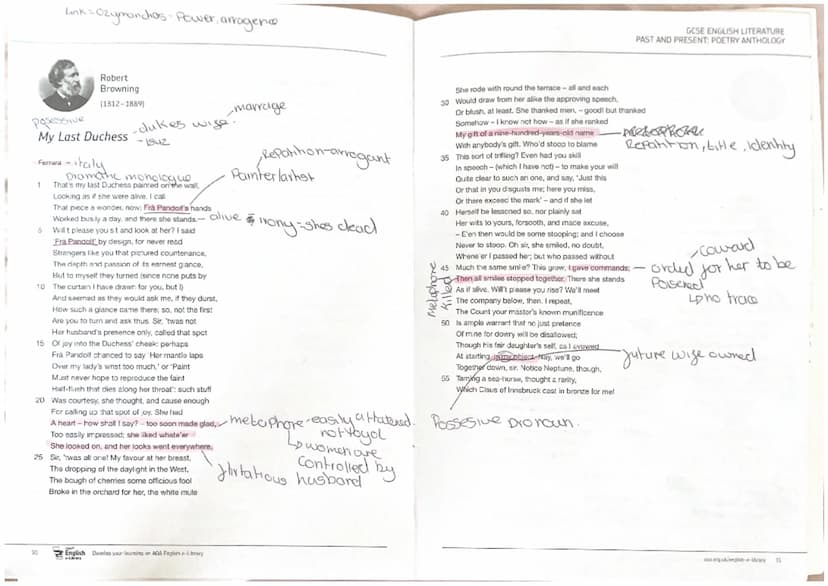 Link = Ozymandias - Power, arrogence
Robert
Browning
(1812–1889)
possessive
- dukes wife
- marriage
My Last Duchess
- 1842
Ferrara - italy
Repatition - arrogant
Dramatic monologue
Painter/artist
1 That's my last Duchess painted on the wall,
Looking as if she were alive. I call
That piece a wonder, now; Frà Pandolf's hands
Worked busily a day, and there she stands. - alive irony - shes dead
5 Will't please you sit and look at her? I said
'Frà Pandolf' by design, for never read
Strangers like you that pictured countenance,
The depth and passion of its earnest glance,
But to myself they turned (since none puts by
10 The curtain I have drawn for you, but I)
And seemed as they would ask me, if they durst,
How such a glance came there; so, not the first
Are you to turn and ask thus. Sir, 'twas not
Her husband's presence only, called that spot
15 Of joy into the Duchess' cheek: perhaps
Frà Pandolf chanced to say 'Her mantle laps
Over my lady's wrist too much,' or 'Paint
Must never hope to reproduce the faint
Half-flush that dies along her throat': such stuff
20 Was courtesy, she thought, and cause enough
For calling up that spot of joy. She had
A heart – how shall I say? – too soon made glad,
metophore - easily attatened.
Too easily impressed; she liked whate'er
not loyol
She looked on, and her looks went everywhere.
women are
controlled by
husbard
flirtatious
25 Sir, 'twas all one! My favour at her breast,
The dropping of the daylight in the West,
The bough of cherries some officious fool
Broke in the orchard for her, the white mule
30
English
Develop your learning on AQA English e-Library
GCSE ENGLISH LITERATURE
PAST AND PRESENT: POETRY ANTHOLOGY
She rode with round the terrace – all and each
30 Would draw from her alike the approving speech,
Or blush, at least. She thanked men, – good! but thanked
Somehow – I know not how – as if she ranked
My gift of a nine-hundred-years-old name
With anybody's gift. Who'd stoop to blame
Repatition, title, identity
35 This sort of trifling? Even had you skill
In speech – (which I have not) – to make your will
Quite clear to such an one, and say, 'Just this
Or that in you disgusts me; here you miss,
Or there exceed the mark' – and if she let
40 Herself be lessoned so, nor plainly set
Her wits to yours, forsooth, and made excuse,
– E'en then would be some stooping; and I choose
Never to stoop. Oh sir, she smiled, no doubt,
Whene'er I passed her; but who passed without
coward
45 Much the same smile? This grew; I gave commands; - orded for her to be
Then all smiles stopped together. There she stands
metaphore
killed
As if alive. Will't please you rise? We'll meet
no trace
The company below, then. I repeat,
The Count your master's known munificence
50 Is ample warrant that no just pretence
Of mine for dowry will be disallowed;
Though his fair daughter's self, as I avowed
At starting, is my object. Nay, we'll go
future wife owned
Together down, sir. Notice Neptune, though,
55 Taming a sea-horse, thought a rarity,
Which Claus of Innsbruck cast in bronze for me!
Possesive pronoun.
aqa.org.uk/english-e-library